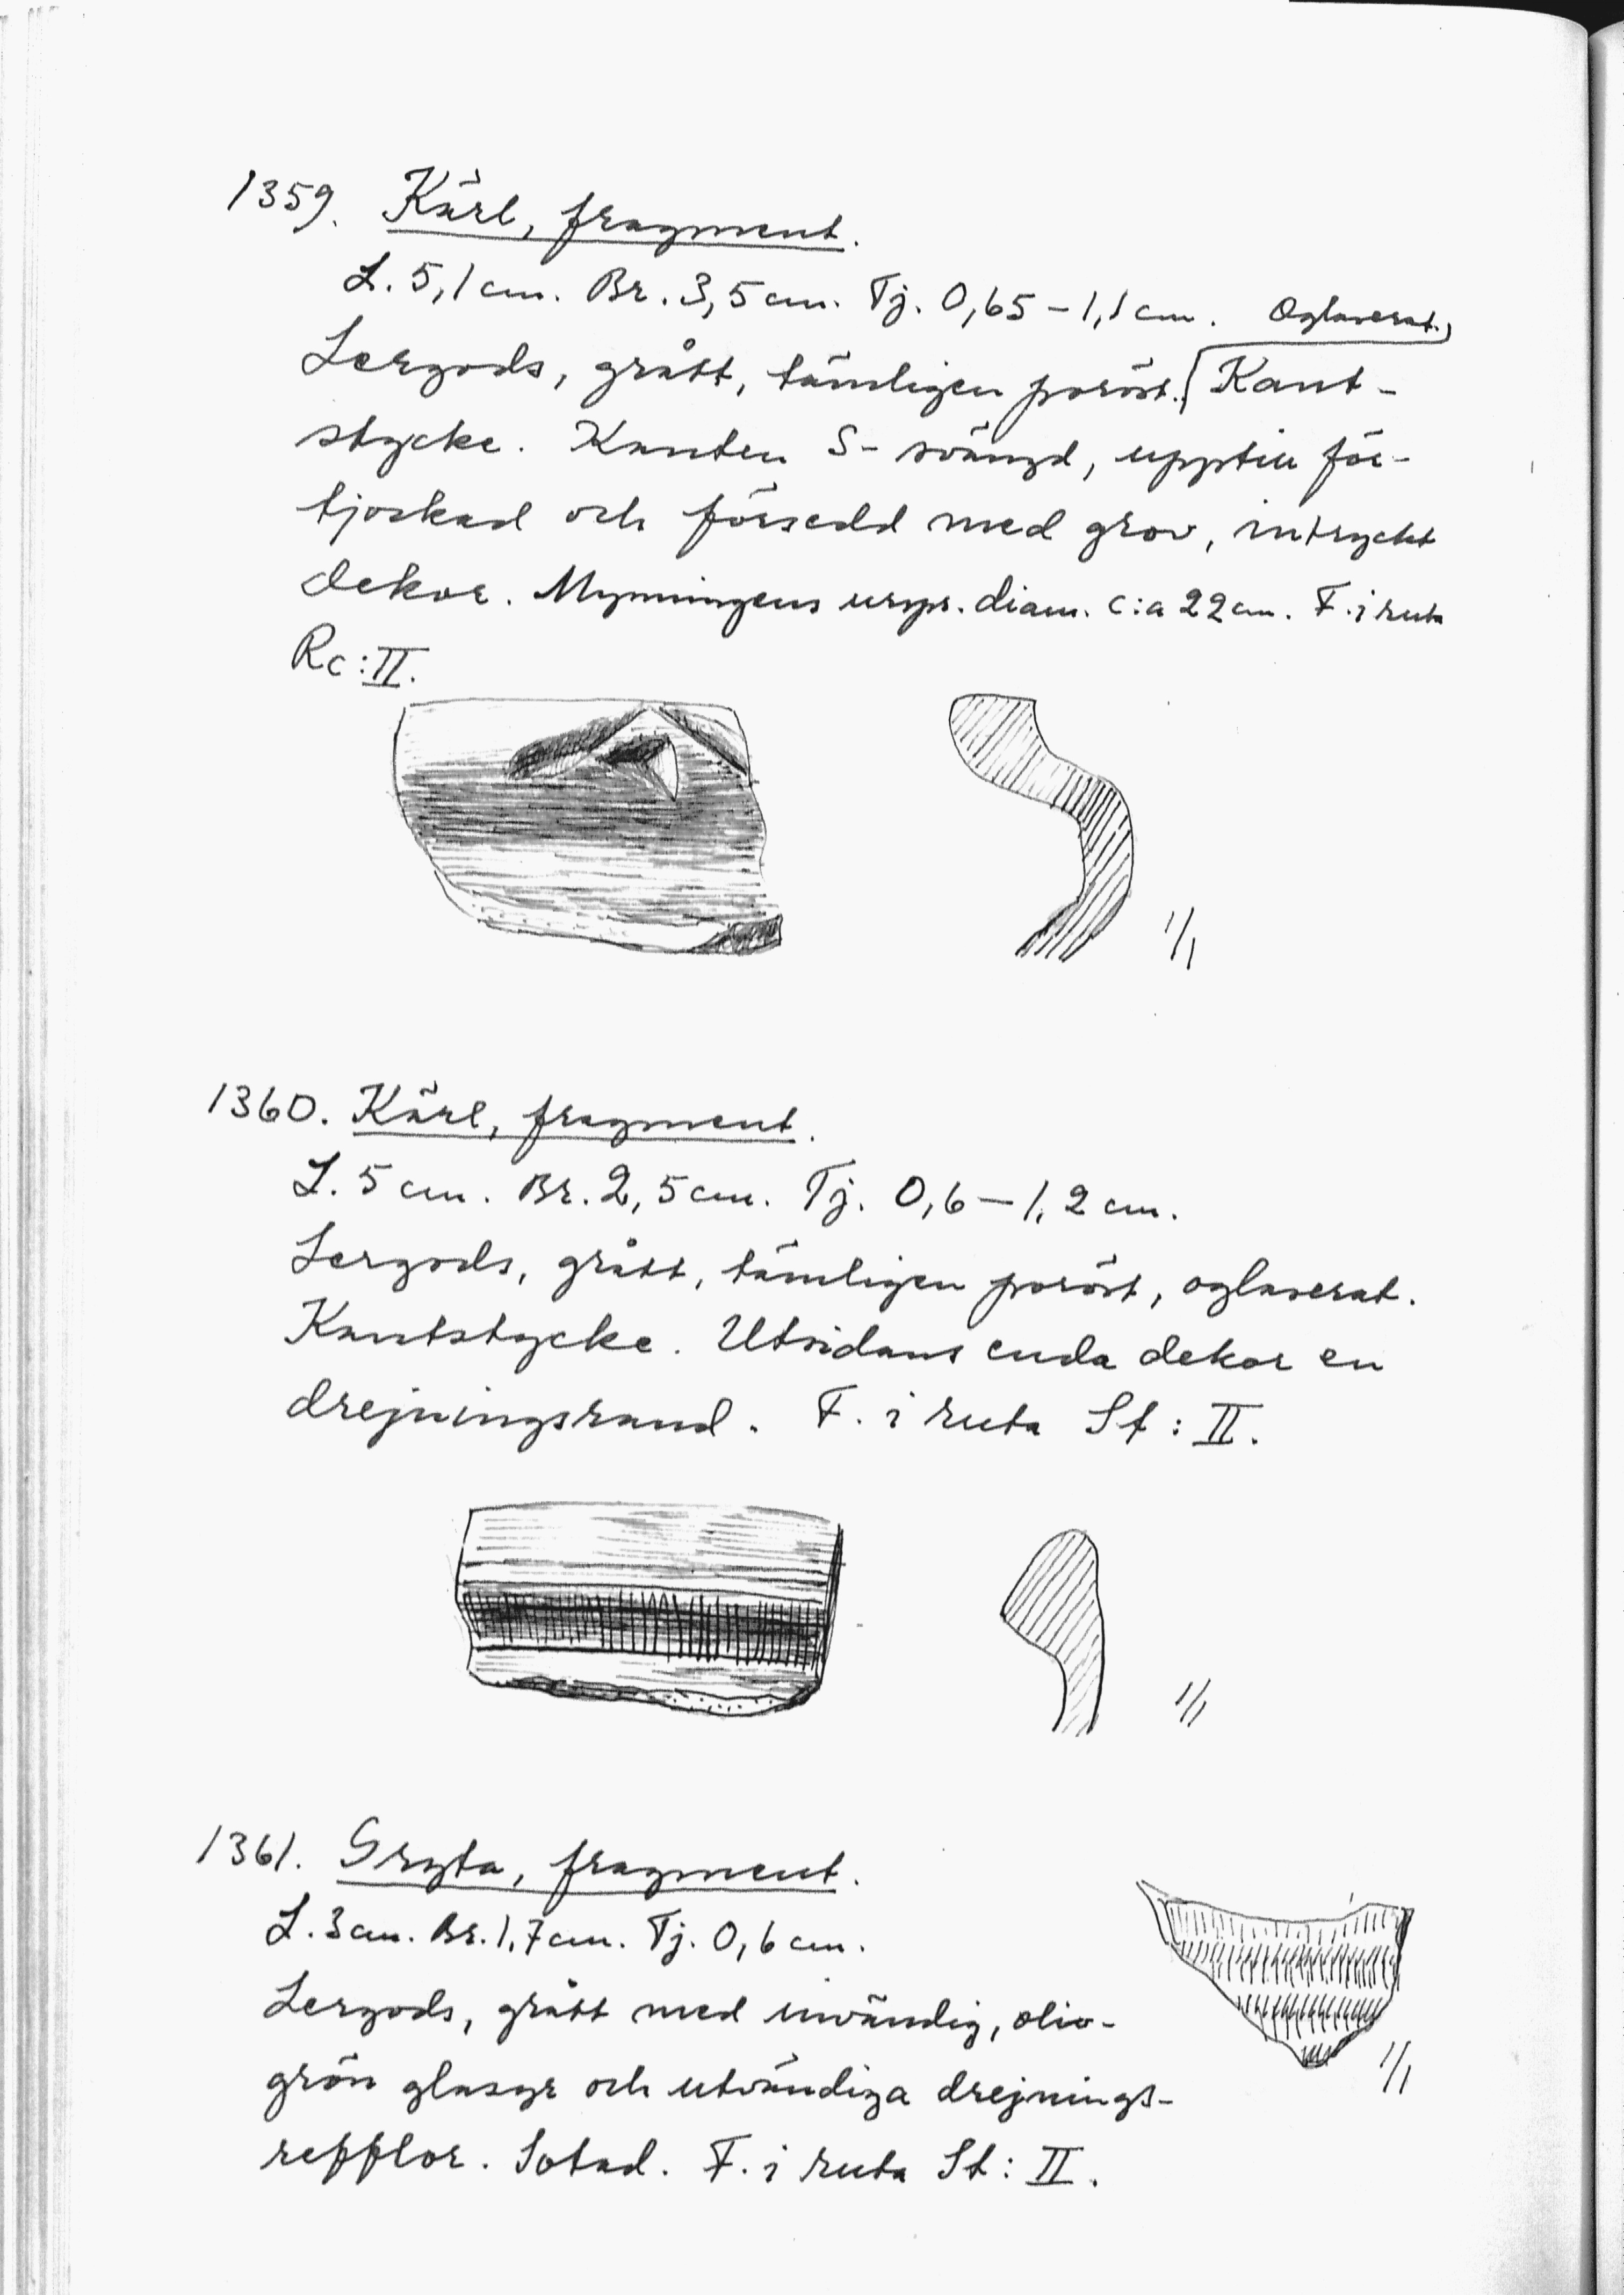 1359. Kärl, fragment.
L. 5,1 cm. Br. 3,5 cm. Tj. 0,65 – 1,1 cm. Oglaserat.
Lergods, grått, tämligen poröst. Kant-
stycke. Kanten S-svängd, upptill för-
tjockad och försedd med grov, intryckt
dekor. Mynningens urspr. diam. c:a 22 cm. F. i ruta
Rc:II.
1/1
1360. Kärl, fragment.
L. 5 cm. Br. 2,5 cm. Tj. 0,6 – 1,2 cm.
Lergods, grått, tämligen poröst, oglaserat.
Kantstycke. Utsidans enda dekor en
drejningsrand. F. i ruta St: II.
1/1
1361. Gryta, fragment.
L. 3 cm. Br. 1,7 cm. Tj. 0,6 cm.
Lergods, grått med invändig, oliv-
grön glasyr och utvändiga drejnings-
refflor. Sotad. F. i ruta St: II.
1/1